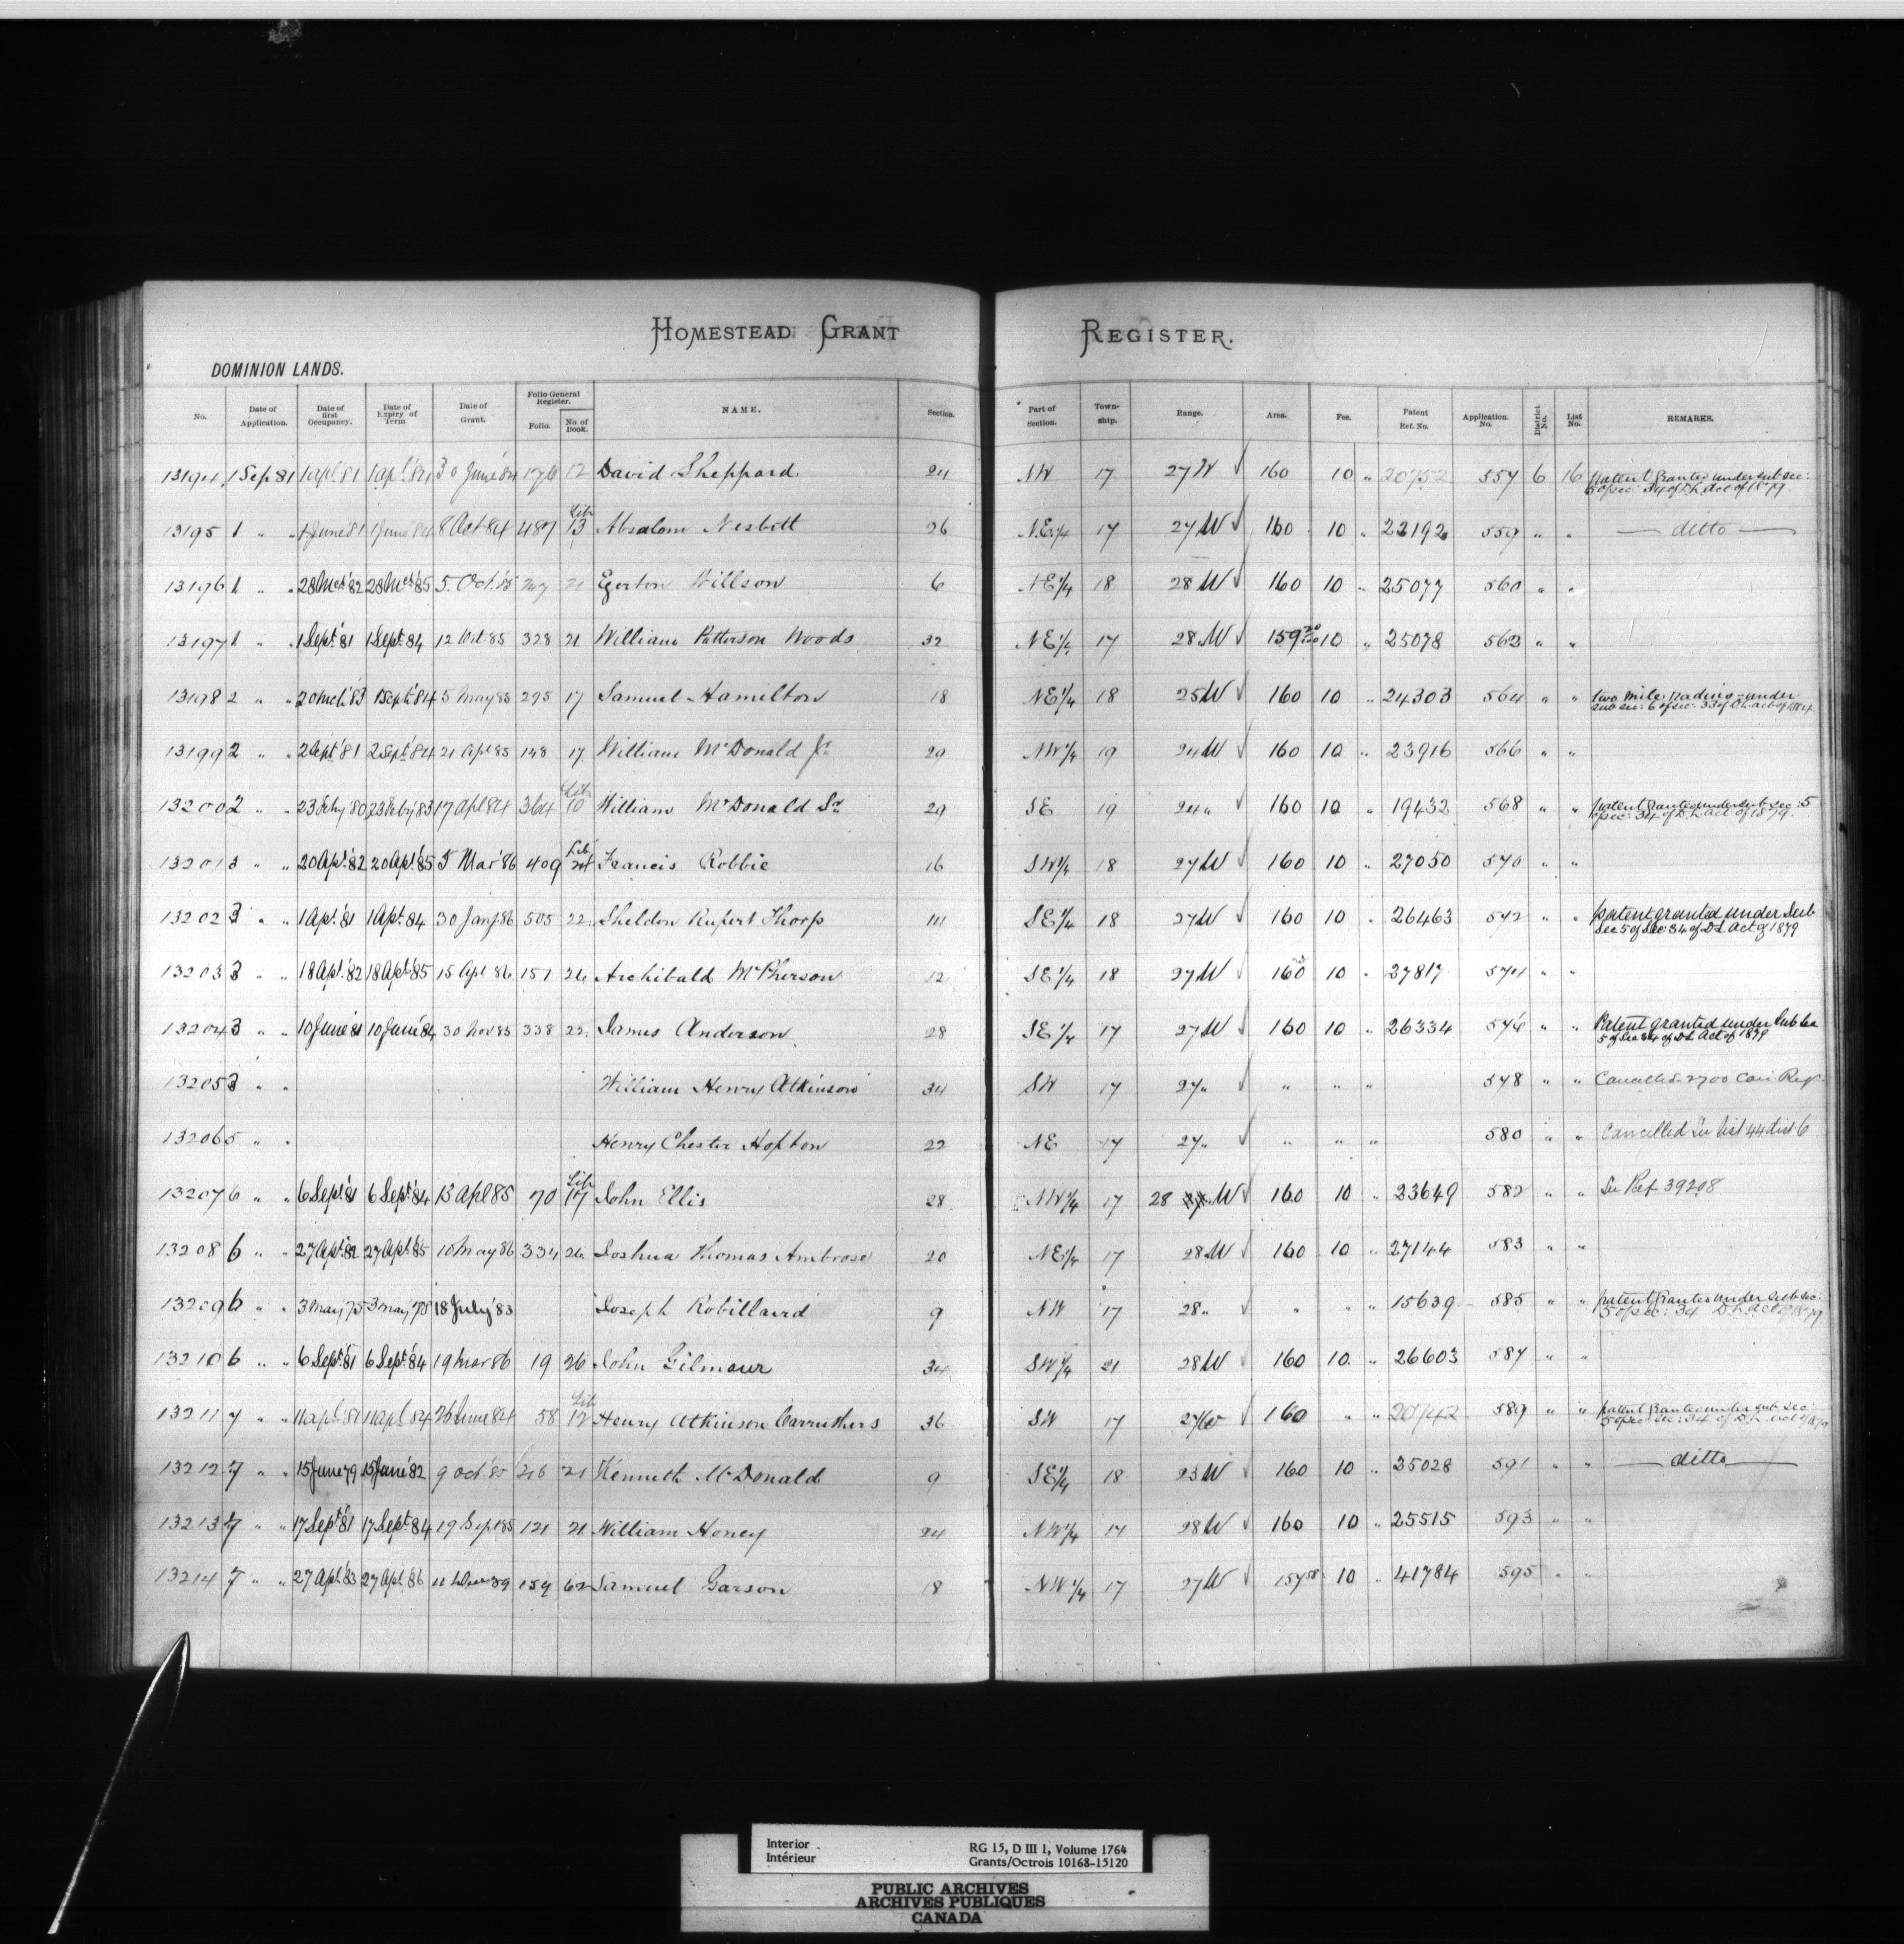 HOMESTEAD GRANT REGISTER.
DOMINION LANDS.
No. Date of Application. Date of first Occupancy. Date of Expiry of Term. Date of Grant. Folio General Register. Folio. No. of Book. NAME. Section. Part of Section. Township. Range. Area. Fee. Patent Ref. No. Application No. District No. List No. REMARKS.
13194 1 Sep 81 1 apl 81 1 apl '84 30 June '84 176 12 David Sheppard 24 NW 17 27 W √ 160 10 " 20752 557 6 16 patent granted under sub sec: 5 of sec: 34 of D.L. act of 1879
13195 1 " " 1 June 81 1 June 84 8 Oct 84 487 Lib 13 Absalom Nesbitt 26 N.E.1/4 17 27 W √ 160 10 " 22192 559 " " — ditto —
13196 1 " " 28 Mch '82 28 Mch '85 5. Oct. '85 21 Egerton Willson 6 NE 1/4 18 28 W √ 160 10 " 25077 560 " "
13197 1 " 1 Sept. '81 1 Sept. 84 12 Oct. 85 328 21 William Patterson Woods 32 NE 1/4 17 28 W √ 159 10 " 25078 562 " "
13198 2 " " 20 Mch. 83 1 Sept. '84 5 May 85 295 17 Samuel Hamilton 18 NE 1/4 18 25 W 160 10 " 24303 564 " " two mile radius - under sub sec: 6 of sec: 33 of D.L. act of 1884
13199 2 " " 2 Sept '81 2 Sept '84 21 Apl 85 148 17. William McDonald Jr. 29 NW 1/4 19 24 W √ 160 10 " 23916 566 " "
13200 2 " " 23 Feby 80 23 Feby 83 17 Apl 84 364 Lib 10 William McDonald Sr. 29 SE 19 24 " √ 160 10 " 19432 568 " " patent granted under sub sec: 5 of sec: 34 of D.L. act of 1879.
13201 3 " " 20 Apl. '82 20 Apl. '85 5 Mar '86 409 Lib 24 Francis Robbie 16 SW 1/4 18 27 W √ 160 10 " 27050 570 " "
13202 3 " " 1 Apl. '81 1 Apl. 84 30 Jany 86 505 22 Sheldon Rupert Thorp 14 SE 1/4 18 27 W √ 160 10 " 26463 572 " " patent granted under Sub Sec 5 of Sec: 34 of D.L Act of 1879
13203 3 " " 18 Apl. '82 18 Apl. '85 15 Apl 86 151 26 Archibald McPherson 12 SE 1/4 18 27 W √ 160 10 " 27817 574 " "
13204 3 " " 10 June '81 10 June '84 30 Nov 85 338 22 James Anderson 28 SE 1/4 17 27 W √ 160 10 " 26334 576 " " Patent granted under Sub Sec 5 of Sec 34 of DL Act of 1879
13205 3 " " William Henry Atkinson 34 SW 17 27 " √ " " " 578 " " Cancelled 2700 Can Reg.
13206 5 " " Henry Chester Hopton 22 NE 17 27 " √ " " " 580 " " Cancelled See list 44 dist 6
13207 6 " " 6 Sept. '81 6 Sept. '84 13 Apl 85 70 Lib 17 John Ellis 28 NW 1/4 17 28 W √ 160 10 " 23649 582 " " See Ref 39208
13208 6 " " 27 Apl. '82 27 Apl. '85 10 May 86 334 26 Joshua Thomas Ambrose 20 NE 1/4 17 28 W √ 160 10 " 27144 583 " "
13209 6 " " 3 May 75 3 May '78 18 July '83 Joseph Robillaird 9 NW 17 28 " √ " " " 15639 585 " " patent granted under sub sec: 5 of sec: 34 D.L. act of 1879
13210 6 " " 6 Sept. '81 6 Sept. '84 19 Mar 86 19 26 John Gilmour 34 SW 1/4 21 28 W √ 160 10. " 26603 587 " "
13211 7 " " 11 apl '81 11 apl 84 26 June 84 58 Lib 12 Henry Atkinson Carruthers 36 SW 17 27 W √ 160 " " 20742 589 " " patent granted under sub sec: 5 of sec: 34 of D.L. act of 1879
13212 7 " " 15 June 79 15 June '82 9 Oct. 85 216 21 Kenneth McDonald 9 SE 1/4 18 23 W √ 160 10 " 25028 591 " " — ditto —
13213 7 " " 17 Sept. '81 17 Sept. '84 19 Sept 85 121 21 William Honey 24 NW 1/4 17 28 W √ 160 10 " 25515 593 " "
13214 7 " " 27 Apl. '83 27 Apl. '86 159 62 Samuel Garson 18 NW 1/4 17 27 W √ 157 58 10 " 41784 595 " "
Interior RG 15, D III 1, Volume 1764
Intérieur Grants/Octrois 10168-15120
PUBLIC ARCHIVES
ARCHIVES PUBLIQUES
CANADA